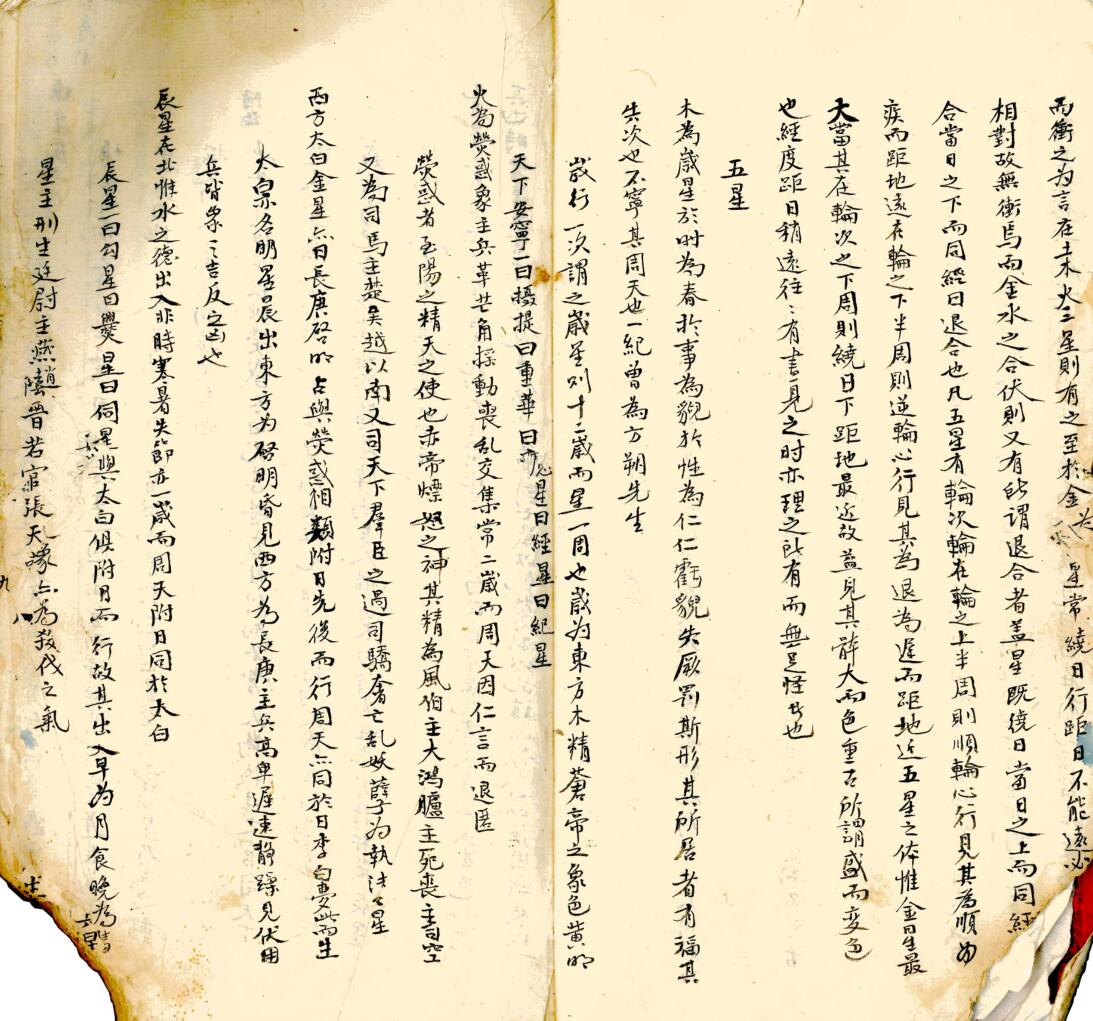 而衝之為言在土木火三星則有之至於金水二星常繞日行距日不能遠必
相對故無衝焉而金水之合伏則又有所謂退合者蓋星既繞日當日之上而同經
合當日之下而同經曰退合也凡五星有輪次輪在輪之上半周則順輪心行見其為順為
疾而距地遠在輪之下半周則逆輪心行見其為退為遲而距地近五星之体惟金星最
大當其在輪次之下周則繞日下距地最近故益見其許大而色重古所謂盛而变色
也經度距日稍遠往〻有晝見之時亦理之所有而無足怪者也
五星
木為歲星於时為春於事為貌於性為仁仁虧貌失厥罰斯形其所居者有福其
失次也不寧其周天也一紀曾為方朔先生
歲行一次謂之歲星则十二歲而星一周也歲为東方木精蒼帝之象色黄明
天下安寧一曰摄提曰重華曰應星曰經星曰紀星
火為熒惑象主兵革芒角揺動喪乱交集常二歲而周天因仁言而退匿
熒惑者至陽之精天之使也赤帝熛怒之神其精為風伯主大鴻臚主死喪主司空
又為司馬主楚吳越以南又司天下羣臣之過司驕奢亡乱妖孽子为執法之星
西方太白金星亦曰長庚啓明占與熒惑相類附日先後而行周天亦同於日李白夢此而生
太白名明星晨出東方为啓明昏見西方为長庚主兵高卑遲速静躁見伏用
兵皆象之吉反之凶也
辰星在北惟水之德出入非時寒暑失節亦一歲而周天附日同於太白
辰星一曰勾星曰爨星曰伺星與太白俱附日而行故其出入早为月食晚為彗
星主刑主廷尉主燕趙